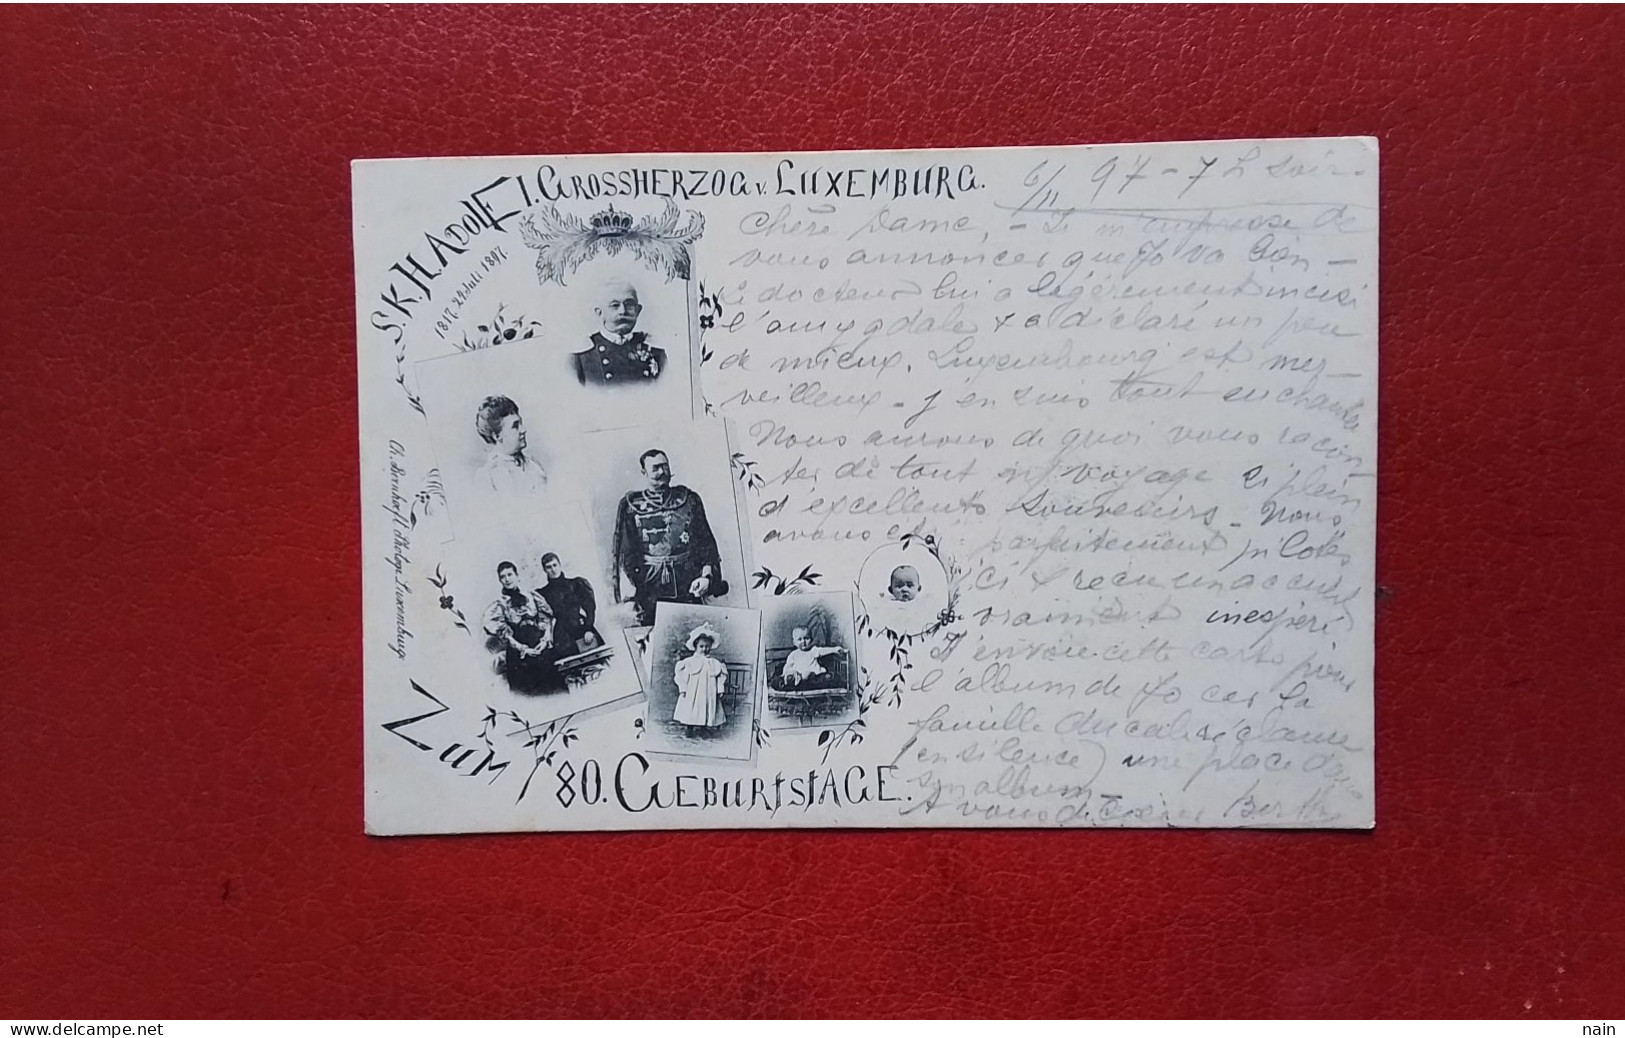 S.K.H. ADOLF I. GROSSHERZOG v. LUXEMBURG.
1817. 24 Juli 1897.
Ch. Bernhoeft Photogr. Luxemburg.
ZUM 80. GEBURTSTAGE.
6/11 97 - 7 h soir.
Chère Dame, - Je m'empresse de
vous annoncer que Jo va bien -
Le docteur lui a légèrement incisé
l'amygdale & a déclaré un peu
de mieux. Luxembourg est mer-
veilleux - j'en suis tout enchantée
Nous aurons de quoi vous racon-
ter de tout voyage si plein
d'excellents souvenirs - Nous
avons été parfaitement pilotés
ici & reçu un accueil
vraiment inespéré.
J'envoie cette carte pour
l'album de Jo car la
famille ducale réclame
(en silence) une place dans
son album.
A vous de cœur Berthe
delcampe.net
nain